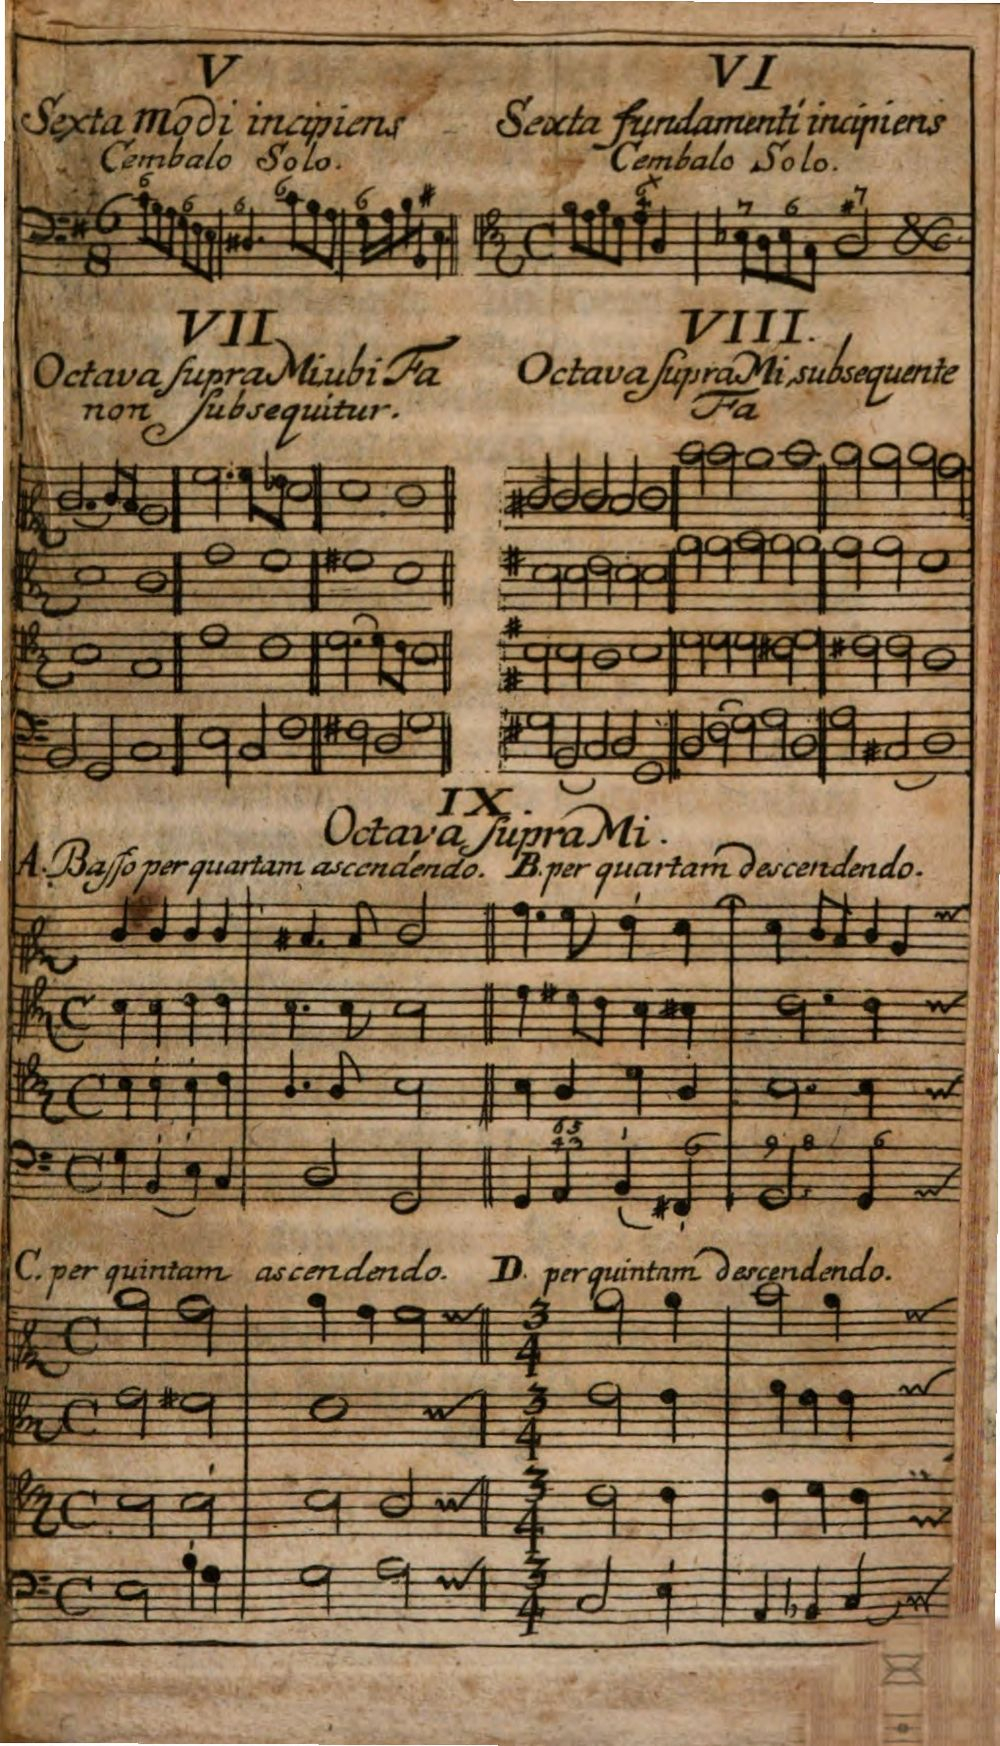 V
Sexta modi incipiens
Cembalo Solo.
VI
Sexta fundamenti incipiens
Cembalo Solo.
6 6 6 6 6
6
8
6
4
7 6 7
VII
Octava supra Mi ubi Fa
non subsequitur.
VIII.
Octava supra Mi, subsequente
Fa
IX.
Octava supra Mi.
A. Basso per quartam ascendendo. B. per quartam descendendo.
65
43
6 9 8 6
C. per quintam ascendendo. D. per quintam descendendo.
3
4
3
4
3
4
3
4